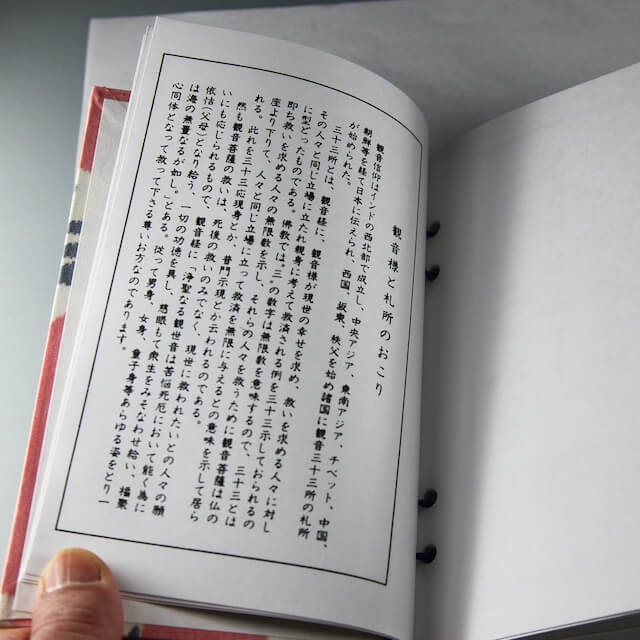 観音様と札所のおこり
観音信仰はインドの西北部で成立し、中央アジア、東南アジア、チベット、中国、
朝鮮等を経て日本に伝えられ、西国、坂東、秩父を始め諸国に観音三十三所の札所
が始められた。
三十三所とは、観音経に、観音様が現世の幸せを求め、救いを求める人々に対し
その人々と同じ立場に立たれ親身に考えて救済される例を三十三示しておられるの
に型どったものである。佛教では〝三〟の数字は無限数を意味するので、三十三とは
即ち救いを求める人々の無限数を示し、それらの人々を救うために観音菩薩は仏の
座より下りて、人々と同じ立場に立って救済を無限に与えるとの意味を示して居ら
れる。此れを三十三応現身とか、普門示現とか云われるのである。
然も観音菩薩の救いは、死後の救いのみでなく、現世に救われたいとの人々の願
いにも応じられるもので、観音経に「浄聖なる観世音は苦悩死厄において能く為に
依怙(父母)となり給う、一切の功徳を具し、慈眼もて衆生をみそなわせ給い、福聚
は海の無量なるが如し。」とある。従って男身、女身、童子身等あらゆる姿をとり一
心同体となって救って下さる尊いお方なのであります。